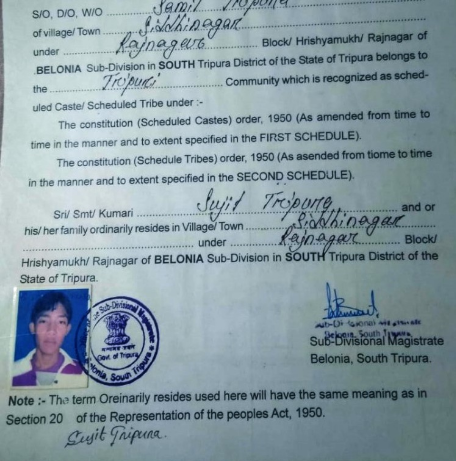 S/O, D/O, W/O ........ Samil Tripura
of village/ Town ........ Siddhinagar
under ........ Rajnagar ........ Block/ Hrishyamukh/ Rajnagar of
BELONIA Sub-Division in SOUTH Tripura District of the State of Tripura belongs to
the ........ Tripuri ........ Community which is recognized as sched-
uled Caste/ Scheduled Tribe under :-
The constitution (Scheduled Castes) order, 1950 (As amended from time to
time in the manner and to extent specified in the FIRST SCHEDULE).
The constitution (Schedule Tribes) order, 1950 (As asended from tiome to time
in the manner and to extent specified in the SECOND SCHEDULE).
Sri/ Smt/ Kumari ........ Sujit Tripura ........ and or
his/ her family ordinarily resides in Village/ Town ........ Siddhinagar
........ under ........ Rajnagar ........ Block/
Hrishyamukh/ Rajnagar of BELONIA Sub-Division in SOUTH Tripura District of the
State of Tripura.
Sub-Divisional Magistrate
Govt. of Tripura
Belonia, South Tripura
Sub-Divisional Magistrate
Belonia, South Tripura
Sub-Divisional Magistrate
Belonia, South Tripura.
Note :- The term Oreinarily resides used here will have the same meaning as in
Section 20 of the Representation of the peoples Act, 1950.
Sujit Tripura.